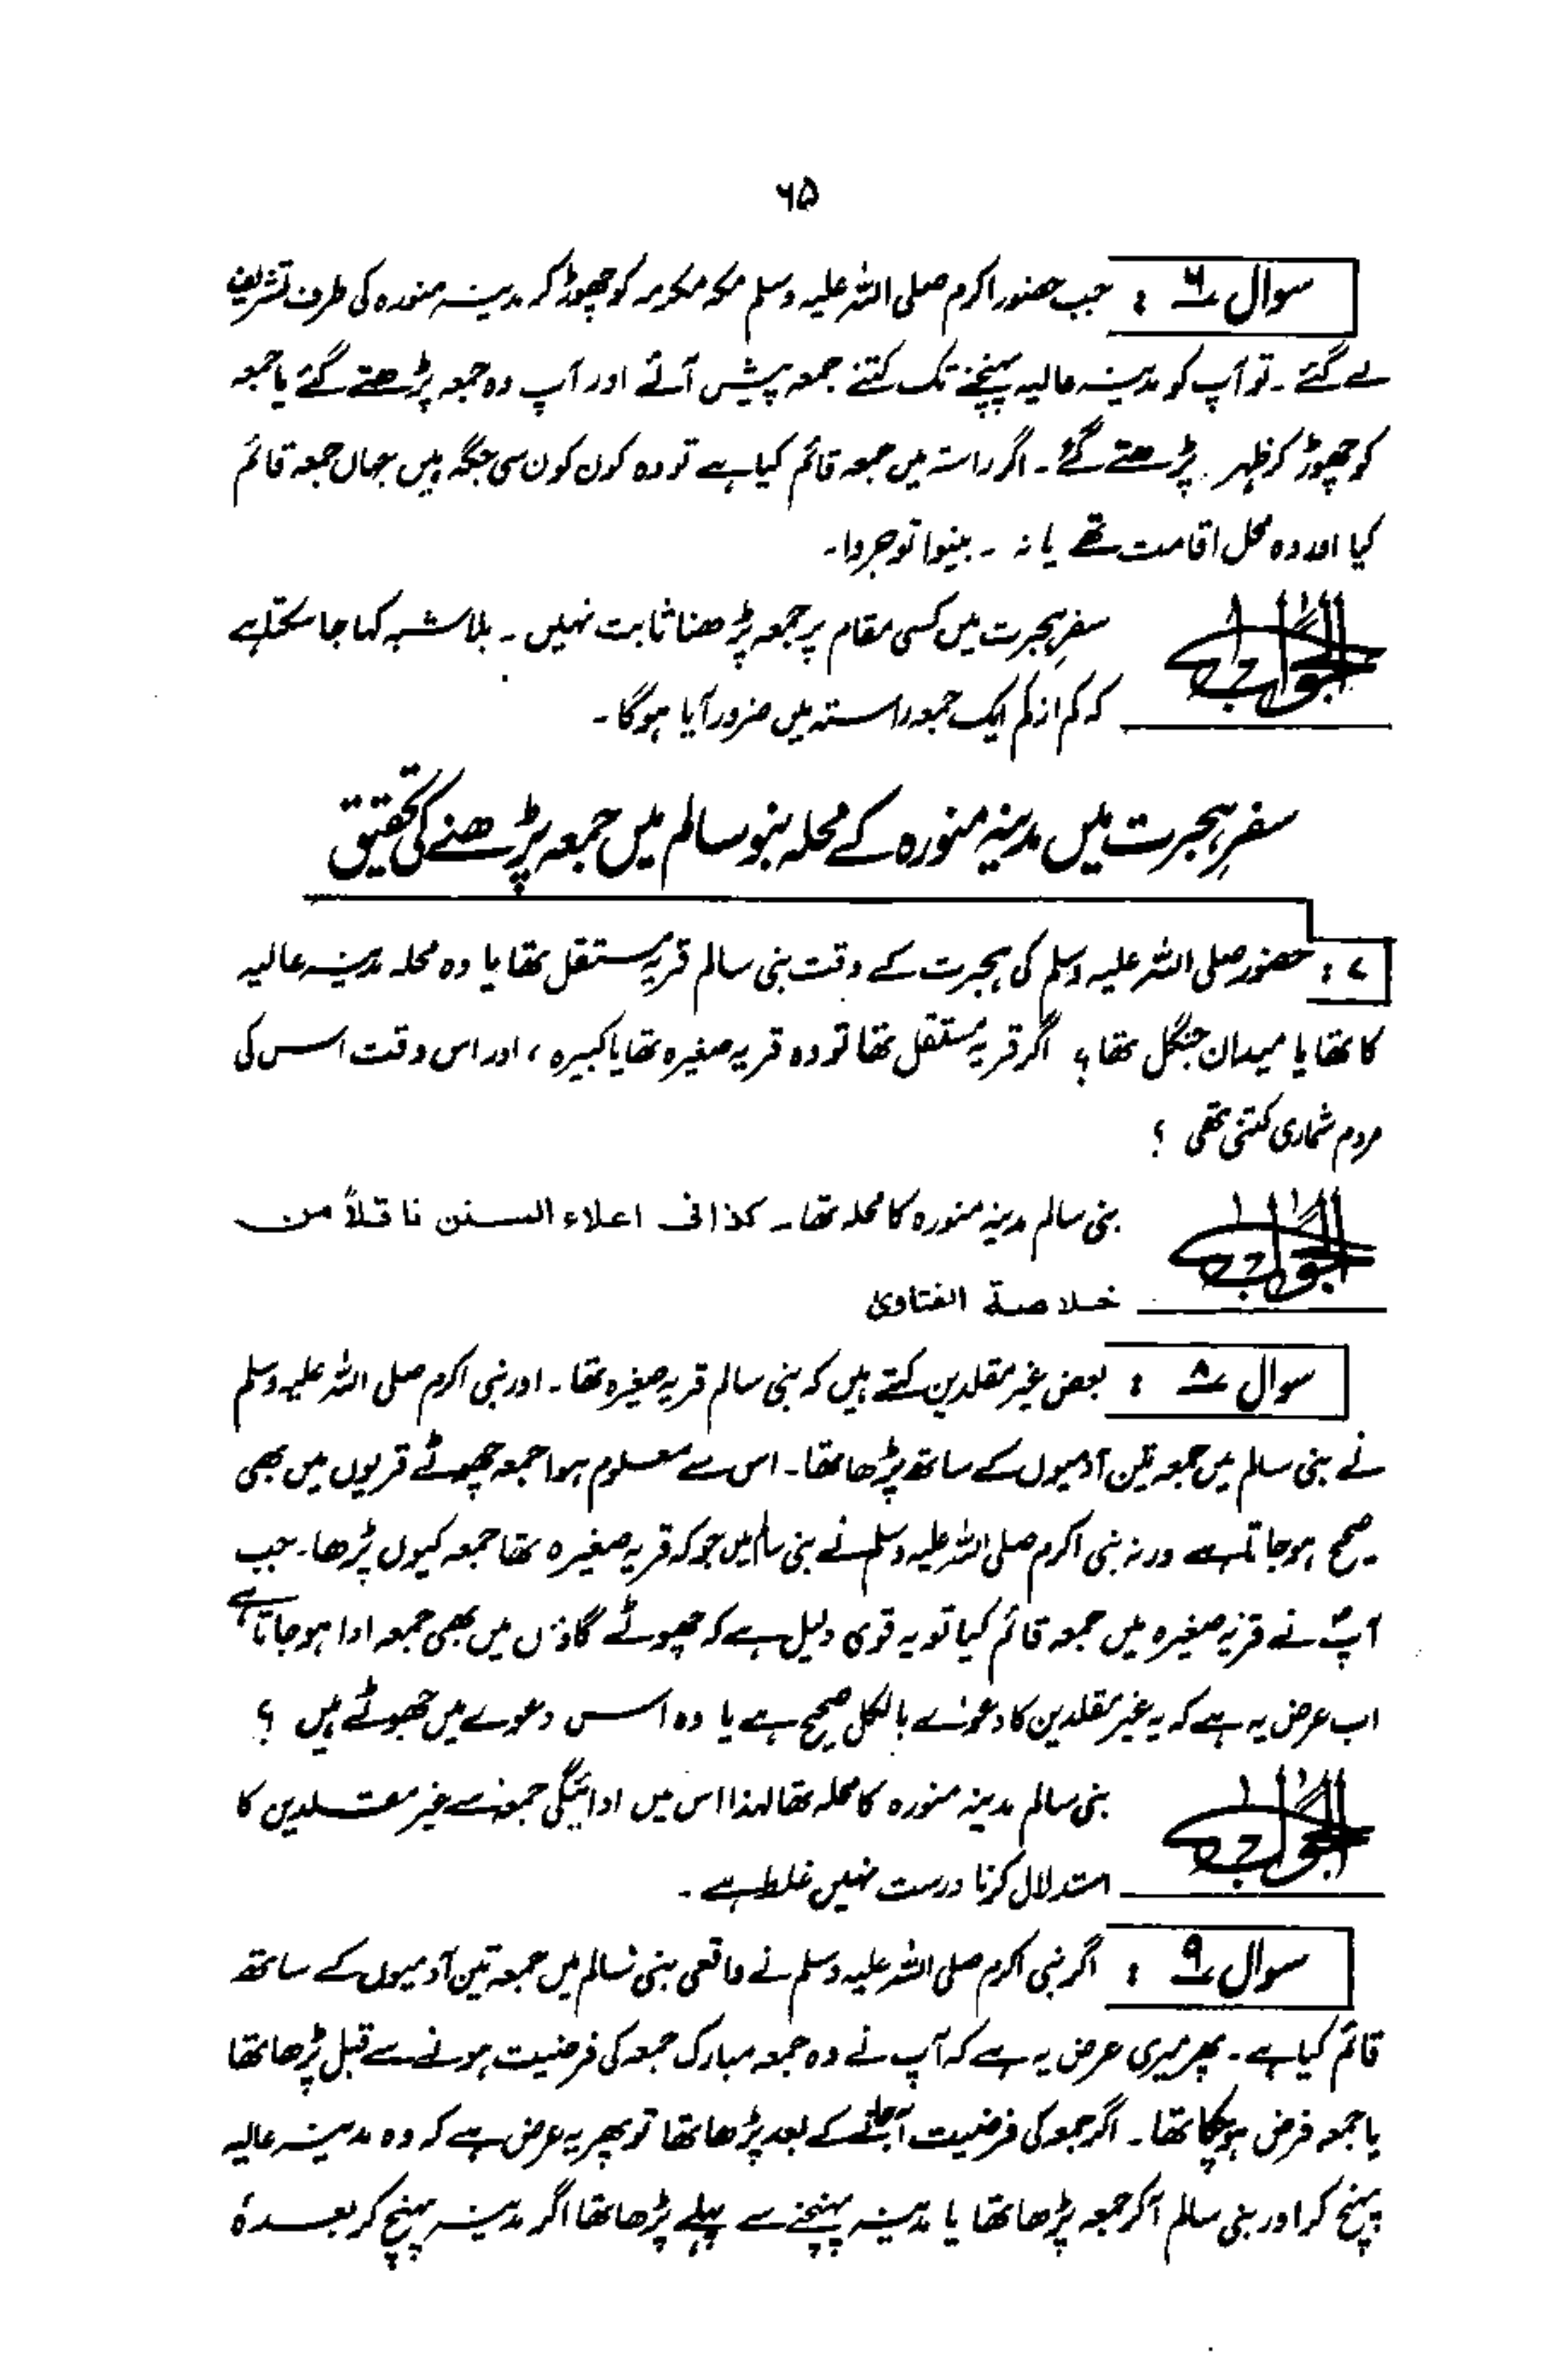 ۶۵
سوال ۶ : جب حضور اکرم صلی اللہ علیہ وسلم مکہ مکرمہ کو چھوڑ کر مدینہ منورہ کی طرف تشریف
لے گئے ۔ تو آپ کو مدینہ عالیہ پہنچنے تک کتنے جمعہ پیش آئے اور آپ وہ جمعہ پڑھتے گئے یا جمعہ
کو چھوڑ کر ظہر پڑھتے گئے ۔ اگر راستہ میں جمعہ قائم کیا ہے تو وہ کون کون سی جگہ ہیں جہاں جمعہ قائم
کیا اور وہ محل اقامت تھے یا نہ ۔ بینوا توجروا ۔
الجواب سفرِ ہجرت میں کسی مقام پر جمعہ پڑھنا ثابت نہیں ۔ بلاشبہ کہا جا سکتا ہے
کہ کم از کم ایک جمعہ راستہ میں ضرور آیا ہوگا ۔
سفرِ ہجرت میں مدینہ منورہ کے محلہ بنو سالم میں جمعہ پڑھنے کی تحقیق
۷ : حضور صلی اللہ علیہ وسلم کی ہجرت کے وقت بنی سالم قریہ مستقل تھا یا وہ محلہ مدینہ عالیہ
کا تھا یا میدان جنگل تھا ؟ اگر قریہ مستقل تھا تو وہ قریہ صغیرہ تھا یا کبیرہ ، اور اس وقت اس کی
مردم شماری کتنی تھی ؟
الجواب بنی سالم مدینہ منورہ کا محلہ تھا ۔ کذا فی اعلاء السنن ناقلاً من
خلاصۃ الفتاویٰ
سوال ۸ : بعض غیر مقلدین کہتے ہیں کہ بنی سالم قریہ صغیرہ تھا ۔ اور نبی اکرم صلی اللہ علیہ وسلم
نے بنی سالم میں جمعہ تین آدمیوں کے ساتھ پڑھا تھا ۔ اس سے معلوم ہوا جمعہ چھوٹے قریوں میں بھی
صحیح ہو جاتا ہے ورنہ نبی اکرم صلی اللہ علیہ وسلم نے بنی سالم میں جو کہ قریہ صغیرہ تھا جمعہ کیوں پڑھا ۔ جب
آپؐ نے قریہ صغیرہ میں جمعہ قائم کیا تو یہ قوی دلیل ہے کہ چھوٹے گاؤں میں بھی جمعہ ادا ہو جاتا ہے
اب عرض یہ ہے کہ یہ غیر مقلدین کا دعوٰے بالکل صحیح ہے یا وہ اس دعوے میں جھوٹے ہیں ؟
الجواب بنی سالم مدینہ منورہ کا محلہ تھا لہٰذا اس میں ادائیگی جمعہ سے غیر مقلدین کا
استدلال کرنا درست نہیں غلط ہے ۔
سوال ۹ : اگر نبی اکرم صلی اللہ علیہ وسلم نے واقعی بنی سالم میں جمعہ تین آدمیوں کے ساتھ
قائم کیا ہے ۔ پھر میری عرض یہ ہے کہ آپ نے وہ جمعہ مبارک جمعہ کی فرضیت ہونے سے قبل پڑھا تھا
یا جمعہ فرض ہو چکا تھا ۔ اگر جمعہ کی فرضیت آ جانے کے بعد پڑھا تھا تو پھر یہ عرض ہے کہ وہ مدینہ عالیہ
پہنچ کر اور بنی سالم آ کر جمعہ پڑھا تھا یا مدینہ پہنچنے سے پہلے پڑھا تھا اگر مدینہ پہنچ کر بعدہٗ